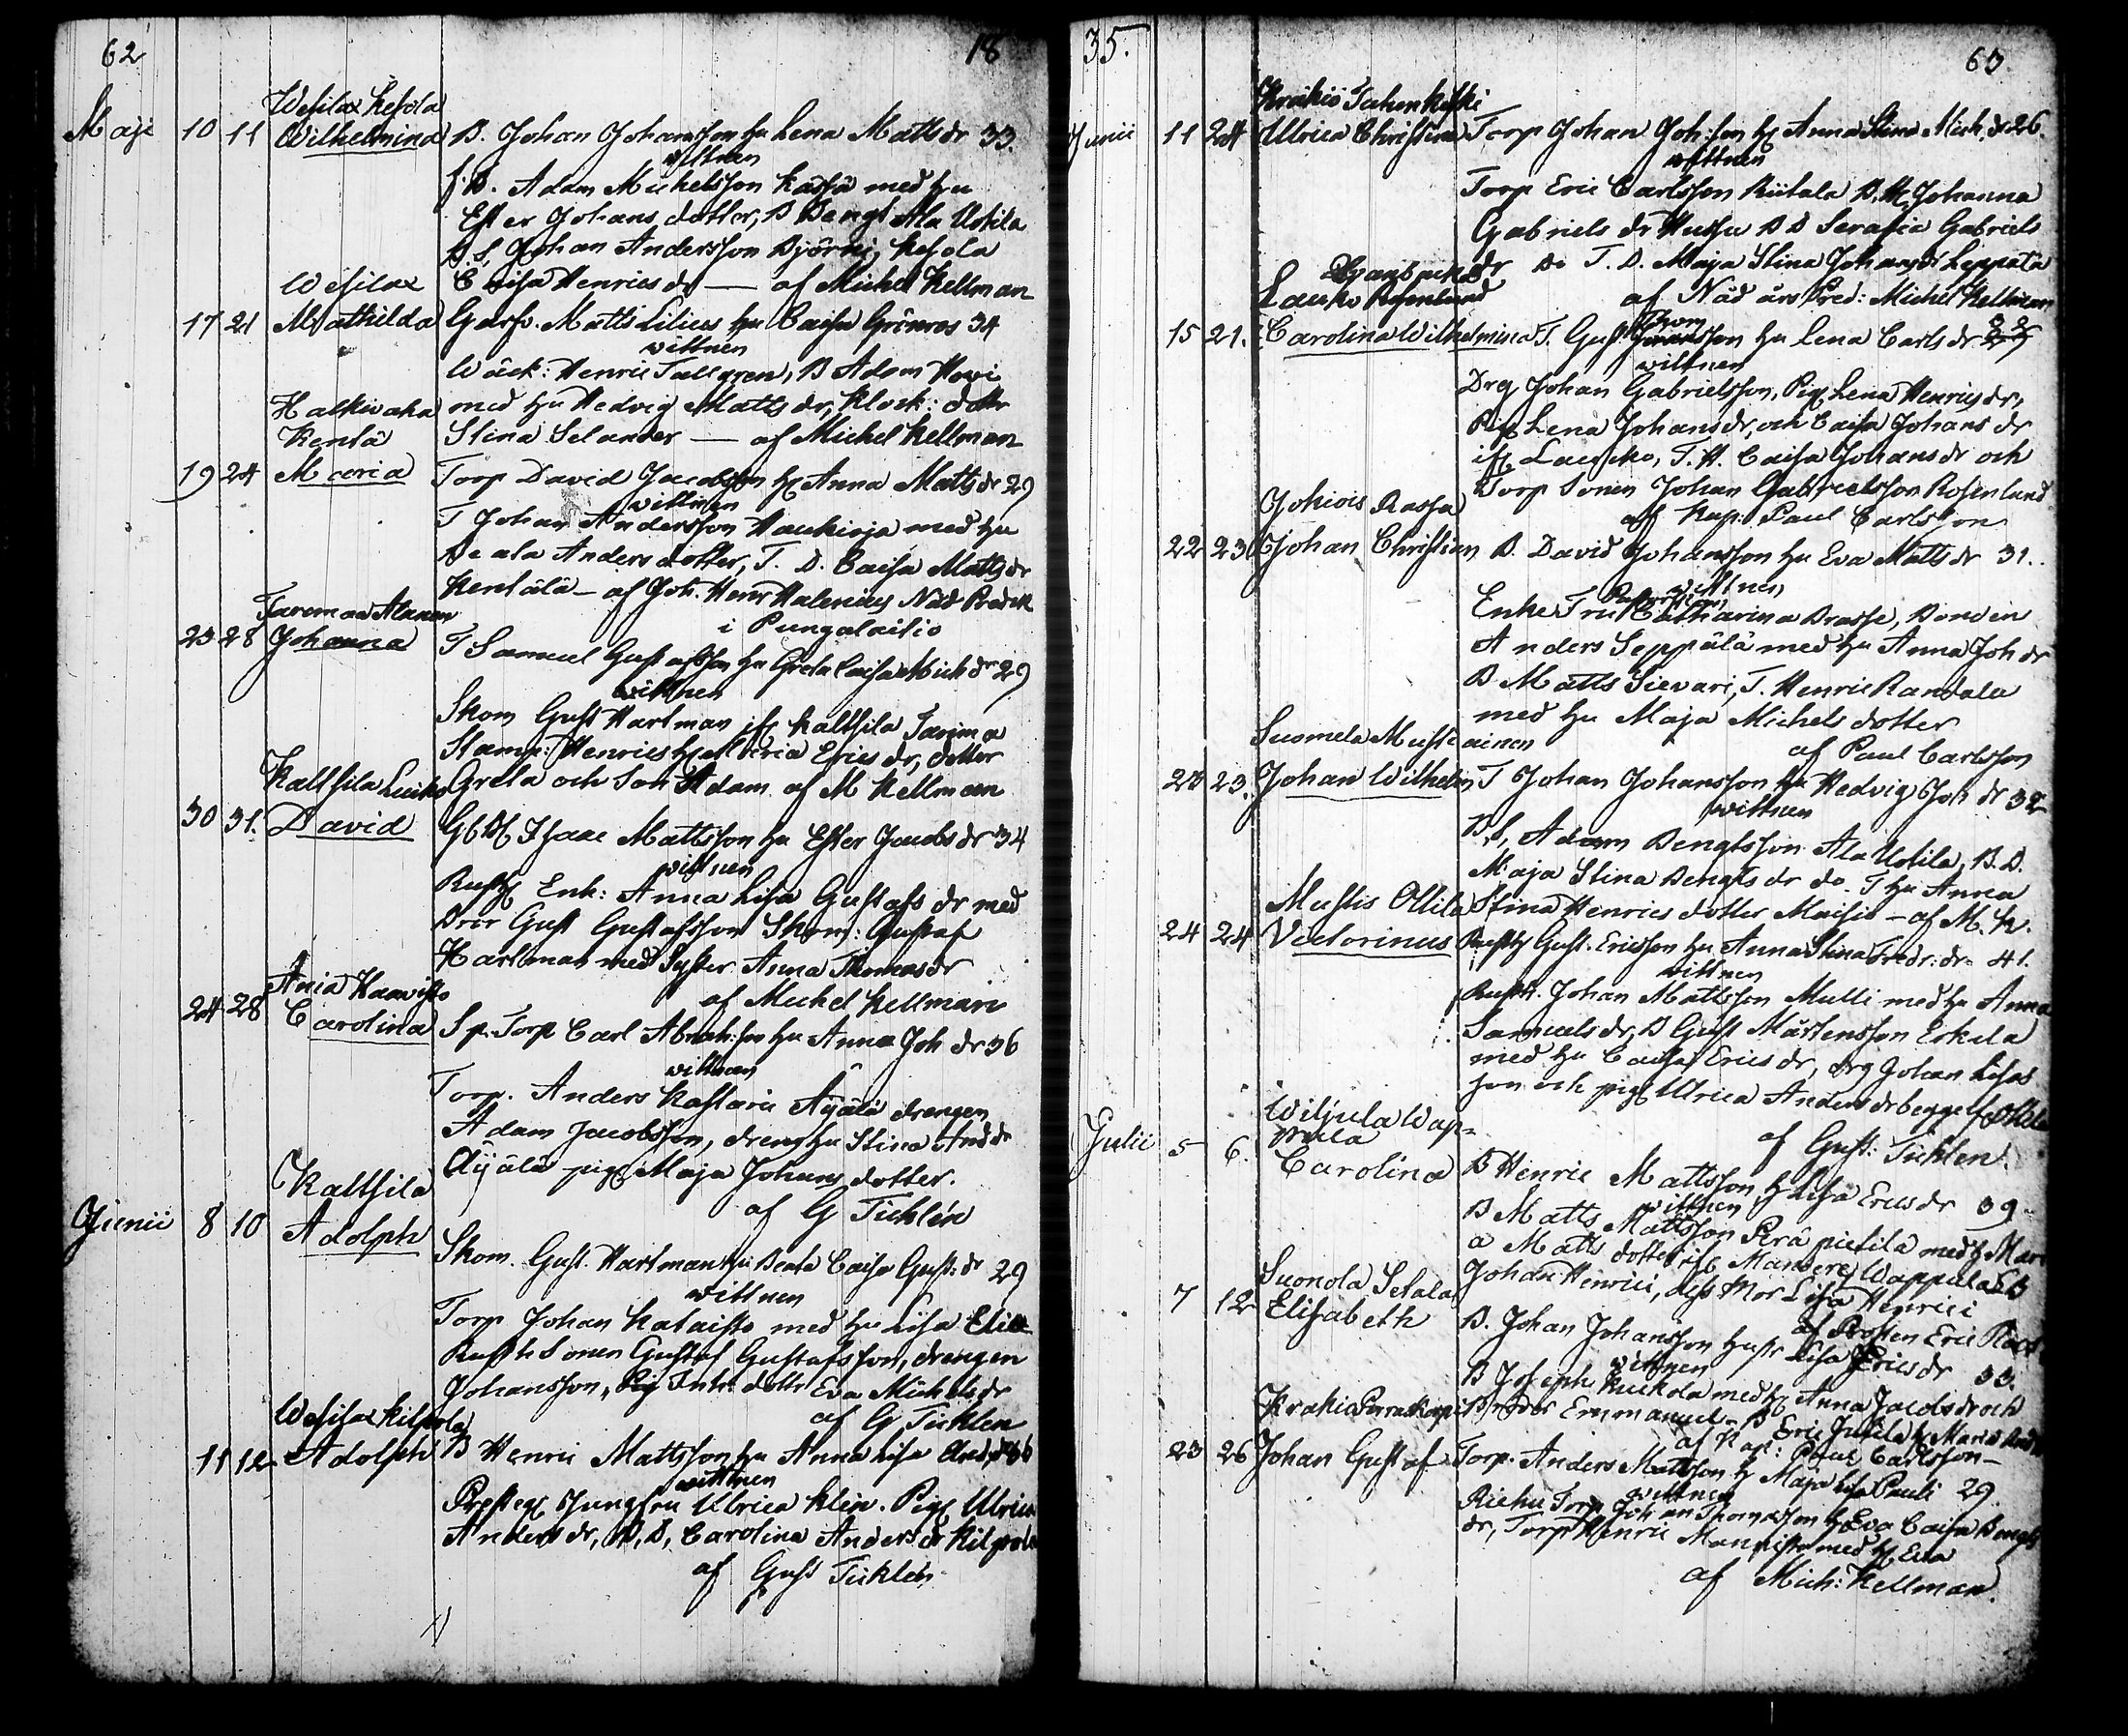 62 18
Wesilax Kesola
Maji 10 11 Wilhelmina B. Johan Johansson hu Lena Matts dr 33.
wittnen
f. B. Adam Michelsson med hu
Ester Johans dotter, B Bengt Ala Uotila
B. S. Johan Andersson Björni, Kesola
Caisa Henrics dr — af Michel Kellman
Wesilax
17 21 Mathilda Garfv. Matts Lilius hu Caisa Grönroos 34
wittnen
Wäck: Henric Tallgren, B Adam Hovi
med hu Hedvig Matts dr, Klock: dottr
Stina Selander — af Michel Kellman
Halkivaha
Kentä
19 24 Maria Torp David Jacobsson hu Anna Matts dr 29
wittnen
T Johan Andersson Haukioja med hu
Beata Anders dotter, T. D. Caisa Matts dr
Kentälä — af Joh. Henr Nåd Predik
i Pungalaitio
Taremaa Alanen
23 28 Johanna T Samuel Gustafsson hu Greta Caisa Mich dr 29
wittnen
Skom Gust Hartman if Kaltsila Tarima
Stamp: Henrics hu Maria Erics dr, dotter
Greta och Son Adam af M Kellman
Kaltsila Luiko
30 31. David Isaac Mattsson hu Ester Jacobs dr 34
wittnen
Rusth Enk: Anna Lisa Gustafs dr med
Bror Gust Gustafsson Skom: Gustaf
Hartman med Syster Anna Thomas dr
af Michel Kellman
Ania Haavisto
24 28 Carolina Sp. Torp Carl Abrah:son hu Anna Joh dr 36
wittnen
Torp. Anders Kastari Äyälä drengen
Adam Jacobsson, dreng hu Stina And dr
Äyälä pig Maja Johans dotter.
af G Ticklén
Kaltsila
Junii 8 10 Adolph Skom. Gust. Hartman hu Beata Caisa Gust: dr 29
wittnen
Torp Johan Kataisto med hu Lisa
Rusth Sonen Gustaf Gustafsson, drengen
Johansson, Inh: dottr Eva Michels dr
af G Ticklen
Wesilax Kilpola
11 12 Adolph B Henric Mattsson hu Anna Lisa And dr
wittnen
Presteg Jungfru Ulrica Klein. Pig Ulrica
Anders dr, B, D, Carolina Anders dr Kilpola
af Gust Ticklén
35. 63
Krakio
Junii 11 24 Ulrica Christina Torp Johan Joh:son hu Anna Stina Mich. dr 26.
wittnen
Torp Eric Carlsson Kiitala B. H, Johanna
Gabriels dr B D Serafia Gabriels
dr Do T. D. Maja Stina Johans dr Leppälä
af Nåd års Pred: Michel Kellman
Lauko Rosenlund
15 21. Carolina Wilhelmina T. Gust Thomsson hu Lena Carls dr
wittnen
Drg Johan Gabrielsson, Pig Lena Henrics dr,
Pig Lena Johans dr, och Caisa Johans dr
if Laucko, T. H. Caisa Johans dr och
Torp Sonen Johan Gabrielsson Rosenlund
af Kap: Paul Carlsson
Johiois Rassa
22 23 Johan Christian B. David Johansson hu Eva Matts dr 31.
wittnen
Enke Fru Catharina Brasse, Bonden
Anders Seppälä med hu Anna Joh dr
B Matts Sievari, T. Henric Randala
med hu Maja Michels dotter
af Paul Carlsson
Suomela Mustiainen
23 23. Johan Wilhelm T Johan Johansson hu Hedvig Joh dr 32
wittnen
B. S, Adam Bengtsson Ala Uotila, B. D.
Maja Stina Bengts dr do. T hu Anna
Stina Henrics dotter Maisio — af M. K.
Mustis Ollila
24 24 Victorinus Rusth Gust. Ericsson hu Anna Stina Fredr: dr 41.
wittnen
Rusth. Johan Mattsson Mulli med hu Anna
Samuels dr, B Gust Mårtensson Erkila
med hu Caisa Erics dr, drg Johan
son och pig Ulrica Anders dr begge if Ollila
af Gust: Ticklen.
Wiljula Wappula
Julii 5 6. Carolina B Henric Mattsson h Lisa Erics dr 39
wittnen
B Matts Mattsson Perä pietilä med h Mari
a Matts dotter if Wappula
Johan Henrici, dess Mor Lisa Henrici
af Prosten Eric
Suonola Setala
7 12 Elisabeth B. Johan Johansson hustr Lisa Erics dr 33.
wittnen
B Joseph Kuckola med h Anna Jacobs dr och
Broder Emmanuel — B Eric h Maria
af Kap: Paul Carlsson —
Krakio
23 26 Johan Gustaf Torp. Anders Mattsson h Maja Lisa Pauli 29
wittnen
Torp Johan Thomasson h Eva Caisa Bengts
dr, Torp Henric Mannisto med h Eva
af Mich: Kellman.